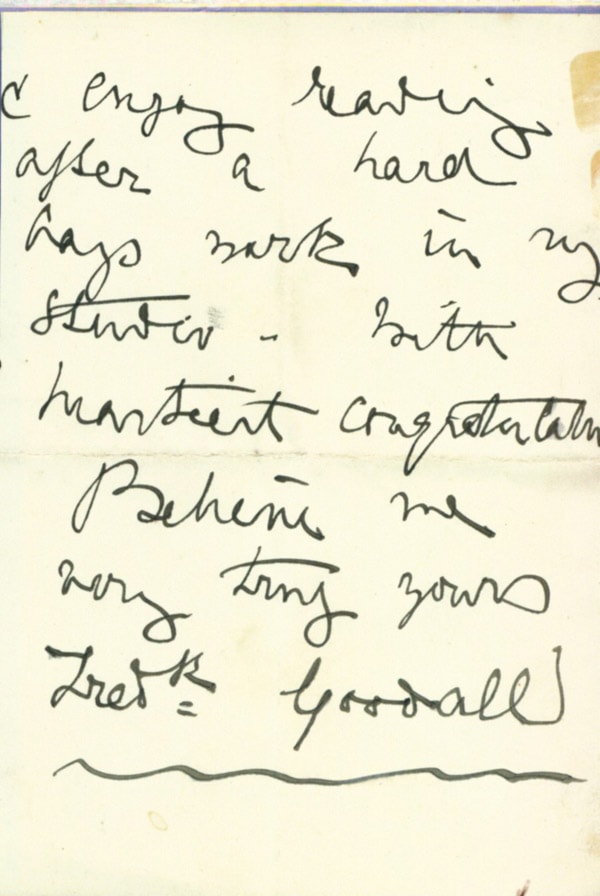 & enjoy reading
after a hard
days work in my
studio - With
heartiest congratulations
Believe me
very truly yours
Fredk Goodall